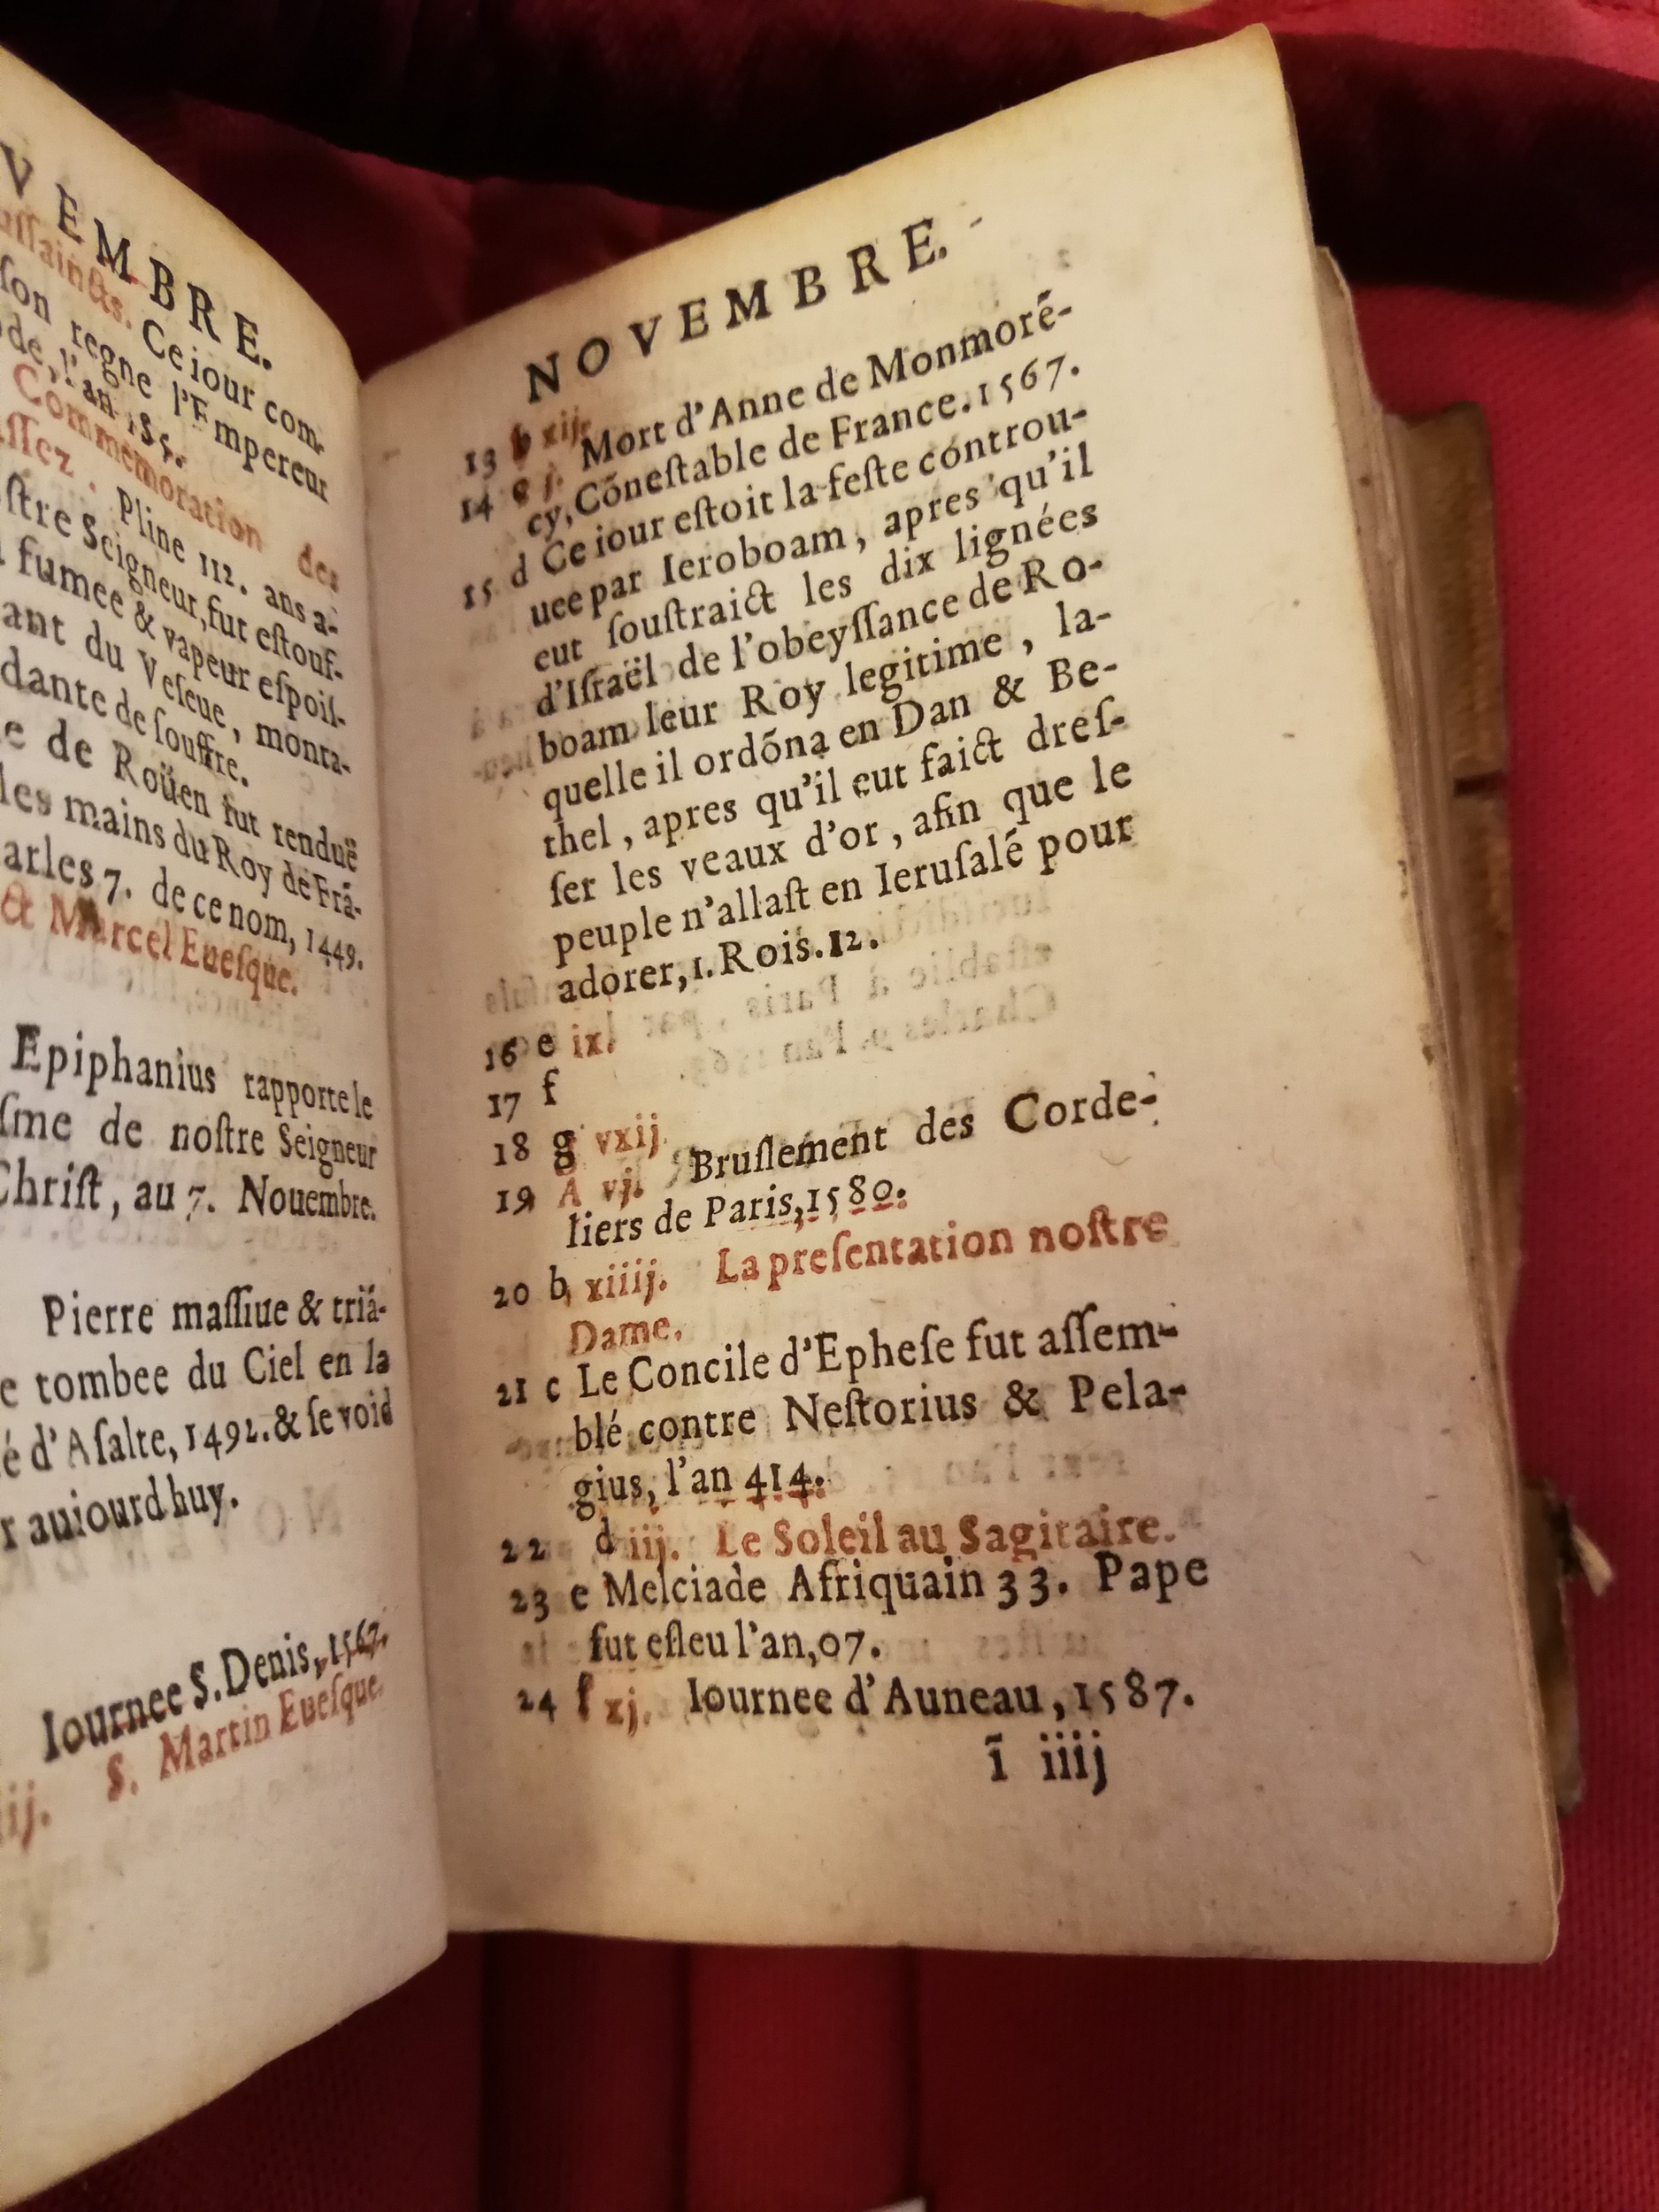 VEMBRE.
ussaincts. Ce iour com-
son regne l'Empereur
de, l'an 155.
Commemoration des
assez. Pline 112. ans a-
ostre Seigneur, fut estouf-
fumee & vapeur espois-
ant du Veseue, monta-
dante de souffre.
e de Roüen fut renduë
les mains du Roy de Frã-
arles 7. de ce nom, 1449.
& Marcel Euesque.
Epiphanius rapporte le
sme de nostre Seigneur
Christ, au 7. Nouembre.
Pierre massiue & triã-
e tombee du Ciel en la
é d'Asalte, 1492. & se void
r auiourdhuy.
Iournee S. Denis, 1567.
ij. S. Martin Euesque.
NOVEMBRE.
13 b xij.
14 c j. Mort d'Anne de Monmorẽ-
cy, Cõnestable de France. 1567.
15 d Ce iour estoit la feste controu-
uee par Ieroboam, apres qu'il
eut soustraict les dix lignées
d'Israël de l'obeyssance de Ro-
boam leur Roy legitime, la-
quelle il ordõna en Dan & Be-
thel, apres qu'il eut faict dres-
ser les veaux d'or, afin que le
peuple n'allast en Ierusalé pour
adorer, 1. Rois. 12.
16 e ix.
17 f
18 g vxij.
19 A vj. Bruslement des Corde-
liers de Paris, 1580.
20 b xiiij. La presentation nostre
Dame.
21 c Le Concile d'Ephese fut assem-
blé contre Nestorius & Pela-
gius, l'an 414.
22 d iij. Le Soleil au Sagitaire.
23 e Melciade Afriquain 33. Pape
fut esleu l'an, 07.
24 f xj. Iournee d'Auneau, 1587.
ĩ iiij